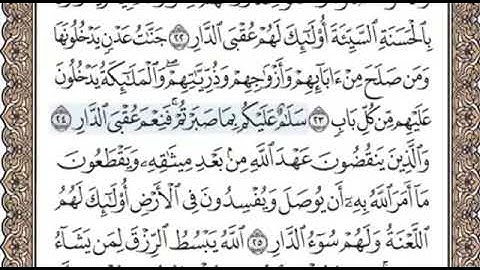 بِٱلۡحَسَنَةِ ٱلسَّيِّئَةَ أُوْلَٰٓئِكَ لَهُمۡ عُقۡبَى ٱلدَّارِ ٢٢ جَنَّٰتُ عَدۡنٖ يَدۡخُلُونَهَا
وَمَن صَلَحَ مِنۡ ءَابَآئِهِمۡ وَأَزۡوَٰجِهِمۡ وَذُرِّيَّٰتِهِمۡۖ وَٱلۡمَلَٰٓئِكَةُ يَدۡخُلُونَ
عَلَيۡهِم مِّن كُلِّ بَابٖ ٢٣ سَلَٰمٌ عَلَيۡكُم بِمَا صَبَرۡتُمۡۚ فَنِعۡمَ عُقۡبَى ٱلدَّارِ ٢٤
وَٱلَّذِينَ يَنقُضُونَ عَهۡدَ ٱللَّهِ مِنۢ بَعۡدِ مِيثَٰقِهِۦ وَيَقۡطَعُونَ
مَآ أَمَرَ ٱللَّهُ بِهِۦٓ أَن يُوصَلَ وَيُفۡسِدُونَ فِي ٱلۡأَرۡضِ أُوْلَٰٓئِكَ لَهُمُ
ٱللَّعۡنَةُ وَلَهُمۡ سُوٓءُ ٱلدَّارِ ٢٥ ٱللَّهُ يَبۡسُطُ ٱلرِّزۡقَ لِمَن يَشَآءُ